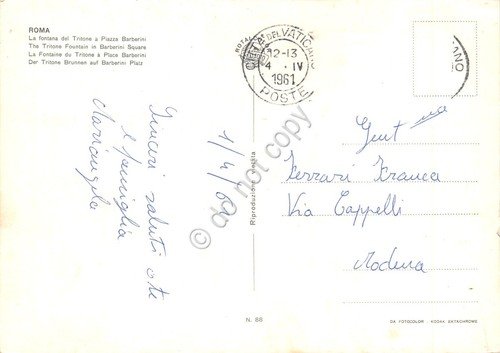 ROMA
La fontana del Tritone a Piazza Barberini
The Tritone Fountain in Barberini Square
La Fontaine du Tritone à Place Barberini
Der Tritone Brunnen auf Barberini Platz
CITTA' DEL VATICANO
12-13
4 · IV
1961
POSTE
CANO
1/4/60
Sinceri saluti a te
e famiglia
Mariangela
Riproduzione vietata
do not copy
Gent ma
Ferrari Franca
Via Cappelli
Modena
N. 88
DA FOTOCOLOR - KODAK EKTACHROME